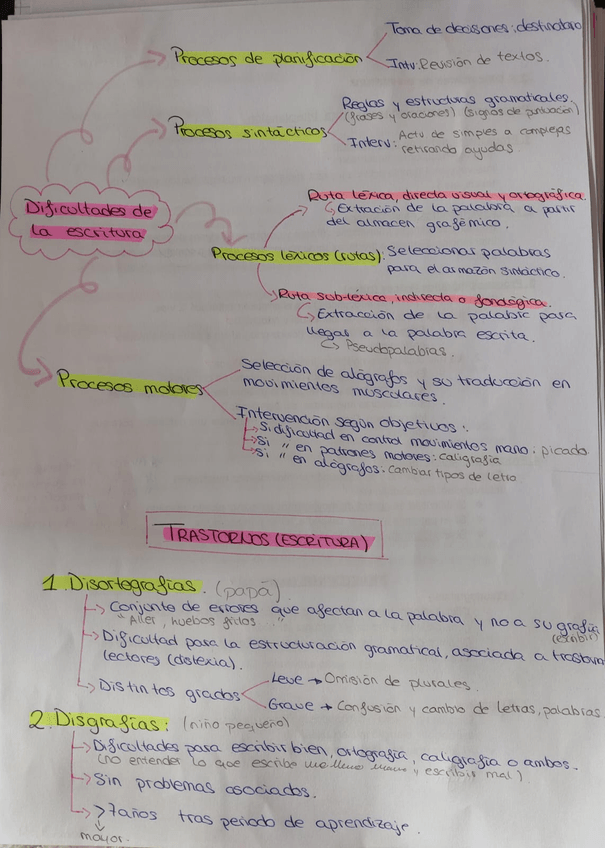 Toma de decisiones: destinatario
Procesos de planificación
Intv: Revisión de textos.
Reglas y estructuras gramaticales.
(frases y oraciones) (signos de puntuación)
Procesos sintácticos
Interv: Activ de simples a complejas
retirando ayudas.
Dificultades de
la escritura
Ruta léxica, directa visual y ortográfica.
Extracción de la palabra a partir
del almacen grafémico.
Procesos léxicos (rutas): Seleccionar palabras
para el armazón sintáctico.
Ruta sub-léxica, indirecta o fonológica.
Extracción de la palabra para
llegar a la palabra escrita.
Pseudopalabras.
Procesos motores
Selección de alógrafos y su traducción en
movimientos musculares.
Intervención según objetivos:
Si dificultad en control movimientos mano: picado
Si " en patrones motores: caligrafía
Si " en alógrafos: cambiar tipos de letra
TRASTORNOS (ESCRITURA)
1. Disortografías. (papá)
Conjunto de errores que afectan a la palabra y no a su grafía
"Aller, huebos fritos..." (escribir)
Dificultad para la estructuración gramatical, asociada a trastorn
lectores (dislexia).
Distintos grados
Leve → Omisión de plurales.
Grave → Confusión y cambio de letras, palabras
2. Disgrafías: (niño pequeño)
Dificultades para escribir bien, ortografía, caligrafía o ambos.
(no entender lo que escribo y escribir mal)
Sin problemas asociados.
> 7 años tras periodo de aprendizaje.
mayor.